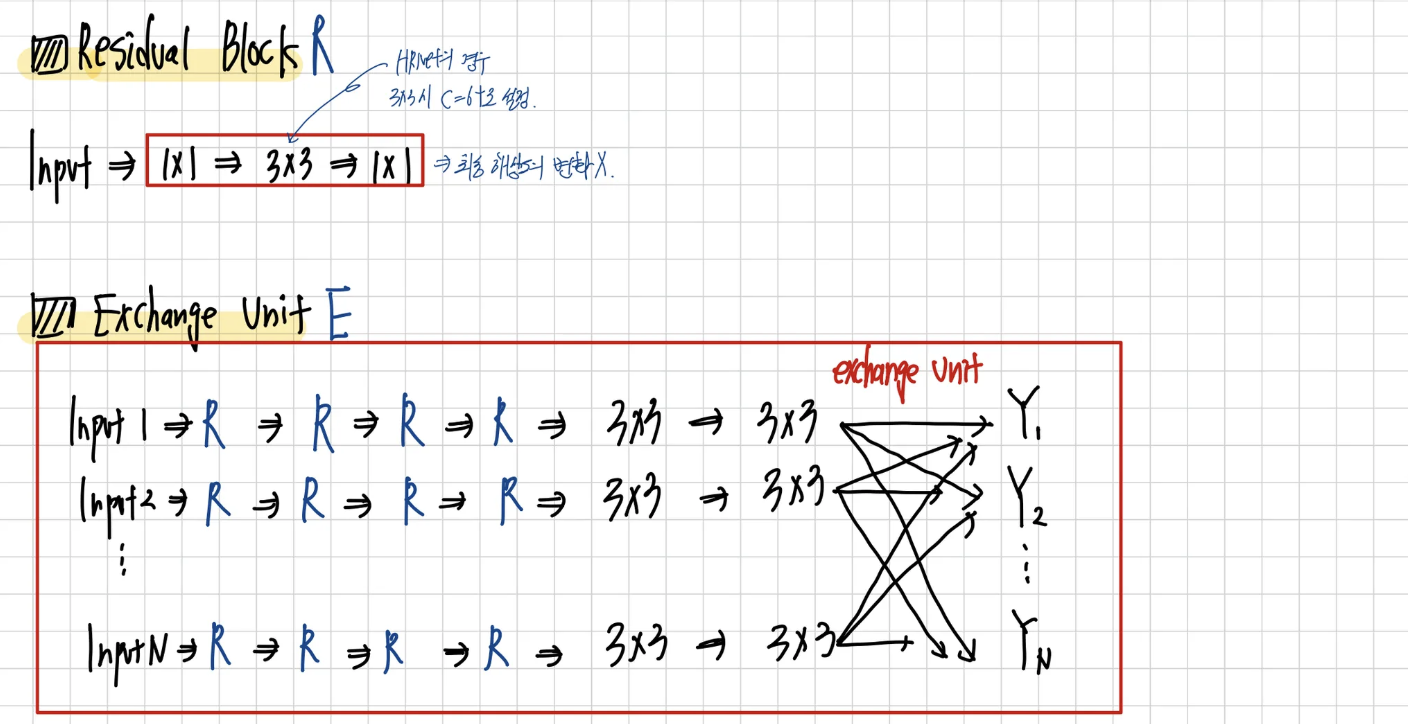 Residual Block R
HRNet의 경우
3x3시 C=64로 설정.
Input ⇒ 1x1 ⇒ 3x3 ⇒ 1x1 ⇒ 최종 해상도의 변화 X.
Exchange Unit E
exchange unit
Input 1 ⇒ R ⇒ R ⇒ R ⇒ R ⇒ 3x3 → 3x3 Y₁
Input2 ⇒ R ⇒ R ⇒ R ⇒ R ⇒ 3x3 → 3x3 Y₂
⋮ ⋮
InputN ⇒ R ⇒ R ⇒ R ⇒ R ⇒ 3x3 → 3x3 Y_N